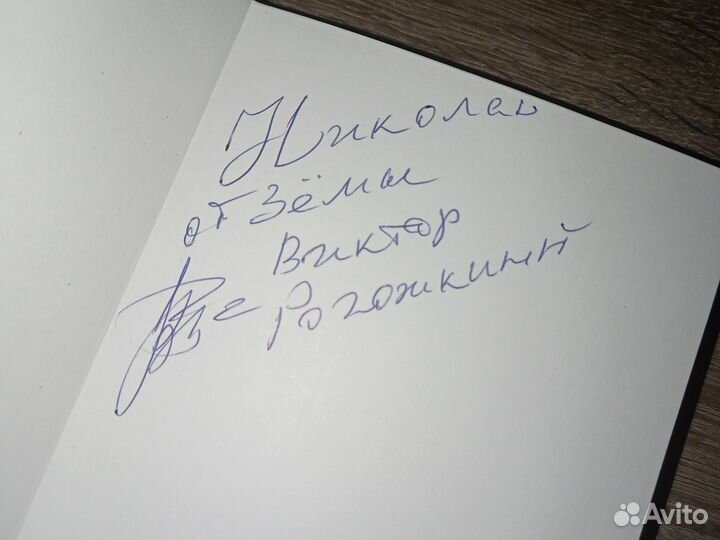 Николаю
от Зёмы
Виктор
Рогожкин
Avito